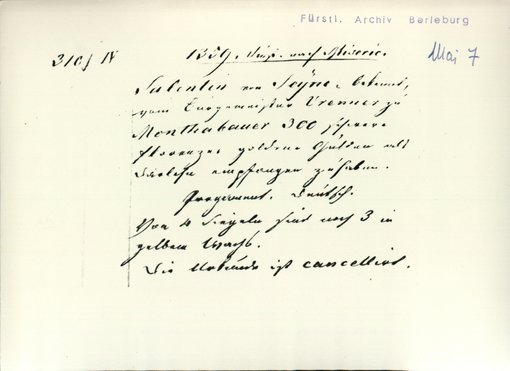 Fürstl. Archiv Berleburg
Mai 7
1359. nach Miseric.
Salentin von Sayn, bekennt,
vom Burgemeister Brenner zu
Monthabauer 300 schwere
florenzer goldene Gulden als
Darlehn empfangen zu haben.
Pergament. Deutsch.
Von 4 Siegeln sind noch 3 in
gelbem Wachs.
Die Urkunde ist cancellirt.